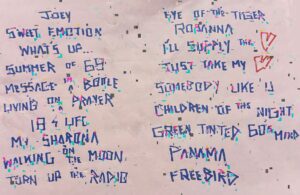 JOEY
SWEET EMOTION
WHAT'S UP...
SUMMER OF 69
MESSAGE A BOTTLE
LIVING ON A PRAYER
18 & LIFE
MY SHARONA
WALKING ON THE MOON
TURN UP THE RADIO
EYE OF THE TIGER
ROXANNA
I'LL SUPPLY THE
JUST TAKE MY
SOMEBODY LIKE U
CHILDREN OF THE NIGHT
GREEN TINTED 60s MIND
PANAMA
FREEBIRD